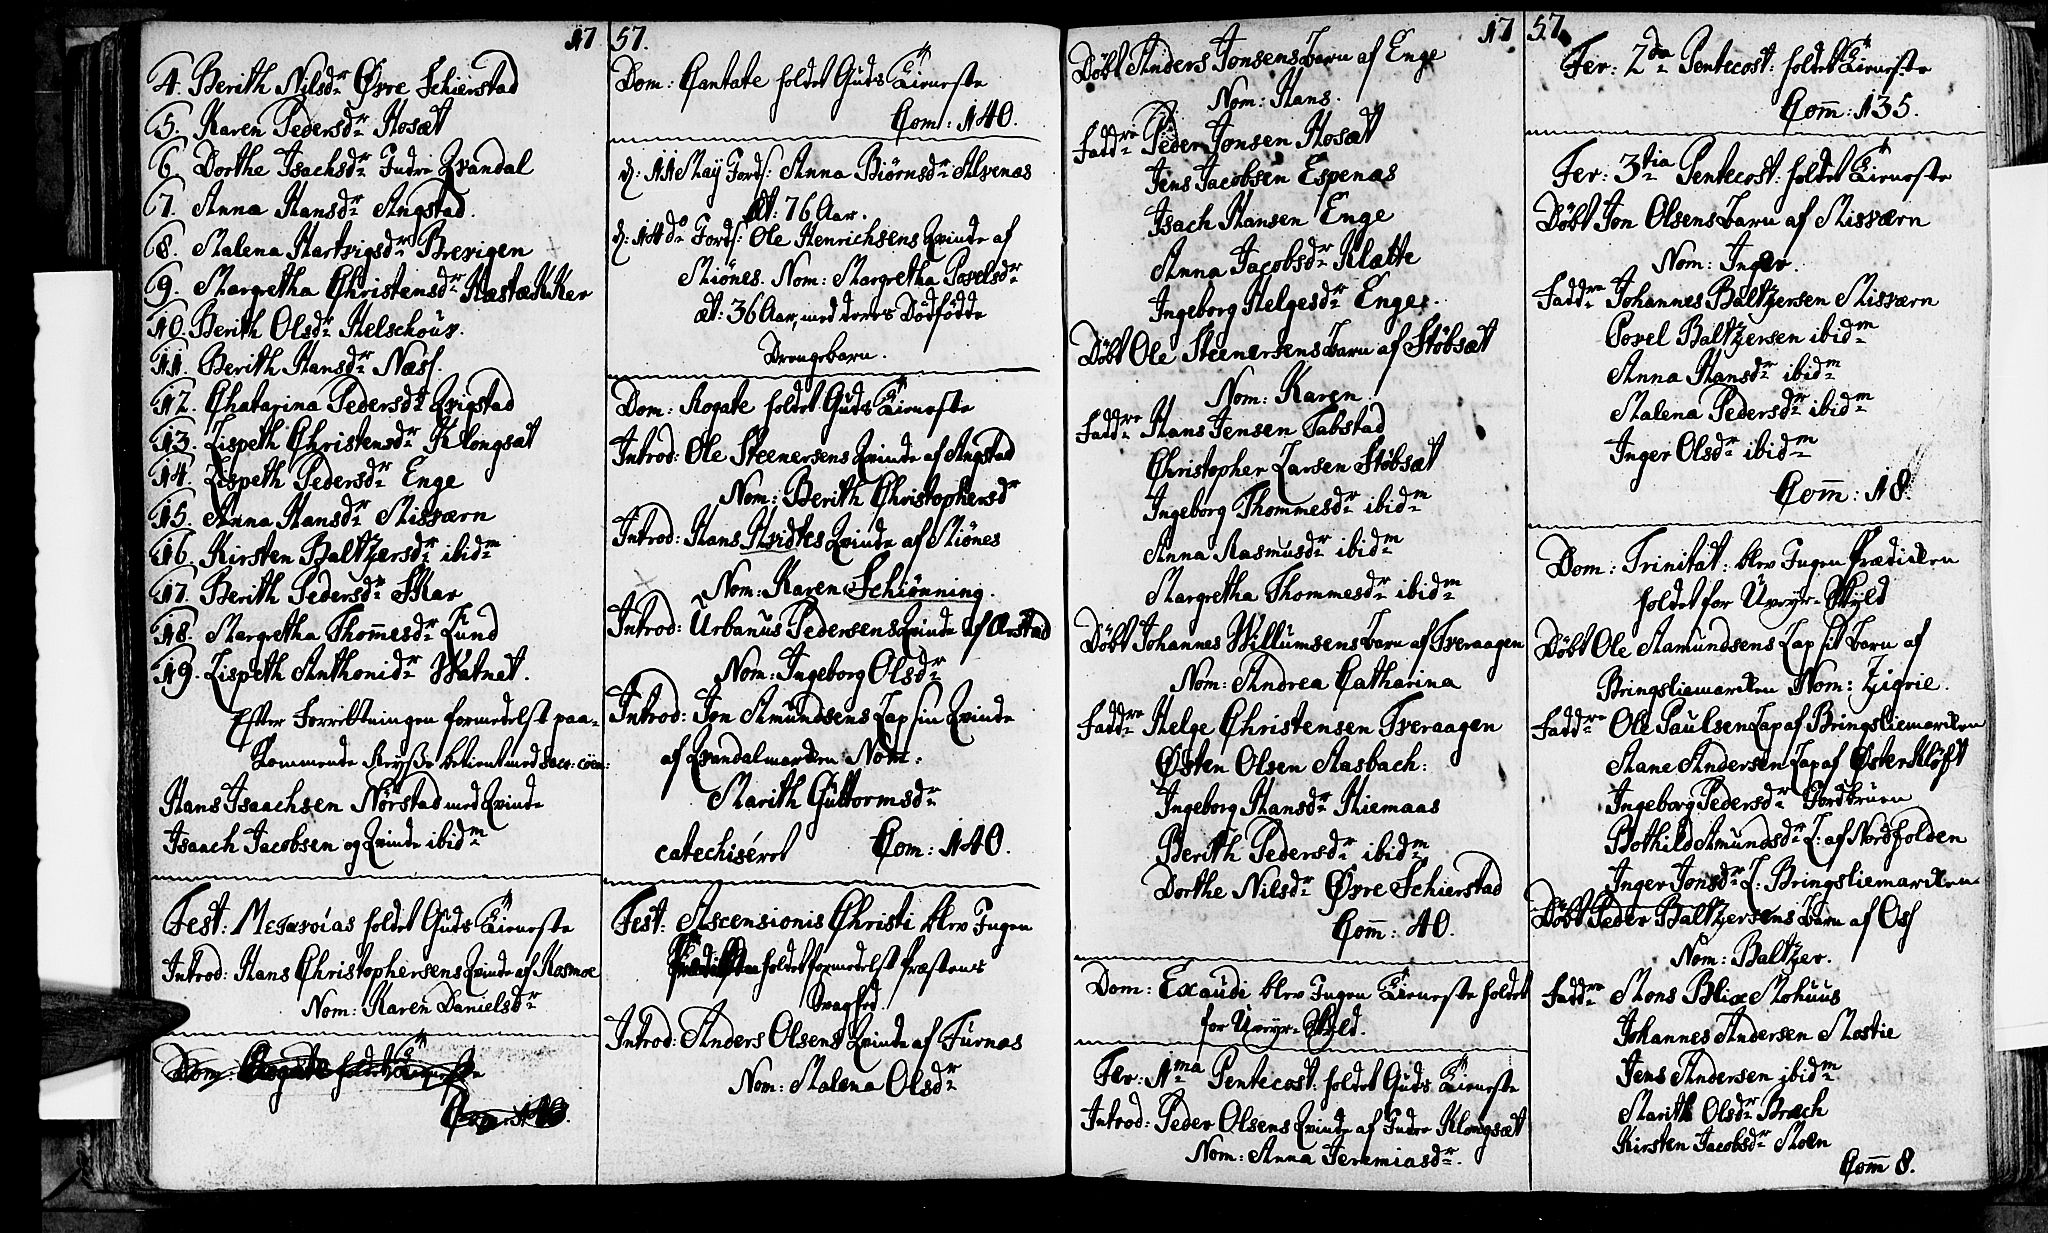 17
4. Berith Nilsdr Øvre Schierstad
5. Karen Pedersdr Hosæt
6. Dorthe Isachsdr Indre Qvandal
7. Anna Hansdr Angstad.
8. Malena Hartvigsdr Brevigen
9. Margretha Christensdr Hæstækker
10. Berith Olsdr Helschouv.
11. Berith Hansdr Næss.
12. Chatarina Pedersdr Qvigstad
13. Lispeth Christensdr Klongsæt
14. Lispeth Pedersdr Enge
15. Anna Hansdr Misværn
16. Kirsten Baltzersdr ibidm
17. Berith Pedersdr Skar
18. Margretha Thommesdr Lund
19. Lispeth Anthonidr Watnet.
Efter Forretningen formedelst paa-
kommende Reyße betient med Sacr: cœn:
Hans Isaachsen Nørstad med Qvinde
Isaach Jacobsen og Qvinde ibidm
Fest: Μεγανοίας holdet Guds Tieneste
Introd: Hans Christophersens Qvinde af Kasmoe
Nom: Karen Danielsdr
Dom: Rogate holdet Tieneste
Com: 140.
57.
Dom: Cantate holdet Guds Tieneste
Com: 140.
d: 11 May Jords: Anna Biørnsdr Alvenæs
Æt: 76 Aar.
d: 14 do Jords: Ole Henrichsens Qvinde af
Miønes. Nom: Margretha Povelsdr
æt: 36 Aar, med deres Dødfødde
Drengebarn.
Dom: Rogate holdet Guds Tieneste
Introd: Ole Steenersens Qvinde af Angstad
Nom: Berith Christophersdr
Introd: Hans Hvidtes Qvinde af Miønes
Nom: Karen Schiønning.
Introd: Urbanus Pedersens Qvinde af Arstad
Nom: Ingeborg Olsdr
Introd: Jon Amundsens Lap sin Qvinde
af Qvandalmarken Nom:
Marith Guttormsdr
catechiséret Com: 140.
Fest: Ascensionis Christi blev Ingen
Prædicken holdet formedelst Præstens
Svaghed.
Introd: Anders Olsens Qvinde af Furnæs
Nom: Malena Olsdr
17
Døbt Anders Jonsens Barn af Enge
Nom: Hans.
Faddre Peder Jonsen Hosæt
Jens Jacobsen Espenæs
Isach Hansen Enge
Anna Jacobsdr Klætte
Ingeborg Helgesdr Enge.
Døbt Ole Steenersens Barn af Støbsæt
Nom: Karen
Faddre Hans Jensen Tabstad
Christopher Larsen Støbsæt
Ingeborg Thommesdr ibidm
Anna Rasmusdr ibidm
Margretha Thommesdr ibidm
Døbt Johannes Willumsens Barn af Tveraagen
Nom: Andrea Catharina
Faddre Helge Christensen Tveraagen
Østen Olsen Aasbach:
Ingeborg Hansdr Hiemaas
Berith Pedersdr ibidm
Dorthe Nilsdr Øvre Schierstad
Com: 40.
Dom: Exaudi blev Ingen Tieneste holdet
for Uveyr-Skyld.
Fer: 1ma Pentecost: holdet Guds Tieneste
Introd: Peder Olsens Qvinde af Indre Klongsæt
Nom: Anna Jeremiasdr.
57
Fer: 2da Pentecost: holdet Tieneste
Com: 135.
Fer: 3tia Pentecost: holdet Tieneste
Døbt Jon Olsens Barn af Misværn
Nom: Inger.
Faddre Johannes Baltzersen Misværn
Povel Baltzersen ibidm
Anna Hansdr ibidm
Malena Pedersdr ibidm
Inger Olsdr ibidm
Com: 18.
Dom: Trinitat: blev Ingen Prædicken
holdet for Uveyr-Skyld
Døbt Ole Aamundsens Lap sit Barn af
Bringsliemarken Nom: Zigrie.
Faddre Ole Paulsen Lap af Bringsliemarken
Aane Andersen Lap af Øster Kløft
Ingeborg Pedersdr Jordbruen
Bothild Amundsdr L: af Nordfolden
Inger Jonsdr L: Bringsliemarken
Døbt Peder Baltzersens Barn af Os
Nom: Baltzer.
Faddre Mons Blix Mohuus
Johannes Andersen Mostie
Jens Andersen ibidm
Marith Olsdr Bræch
Kirsten Jacobsdr Moen
Com 8.